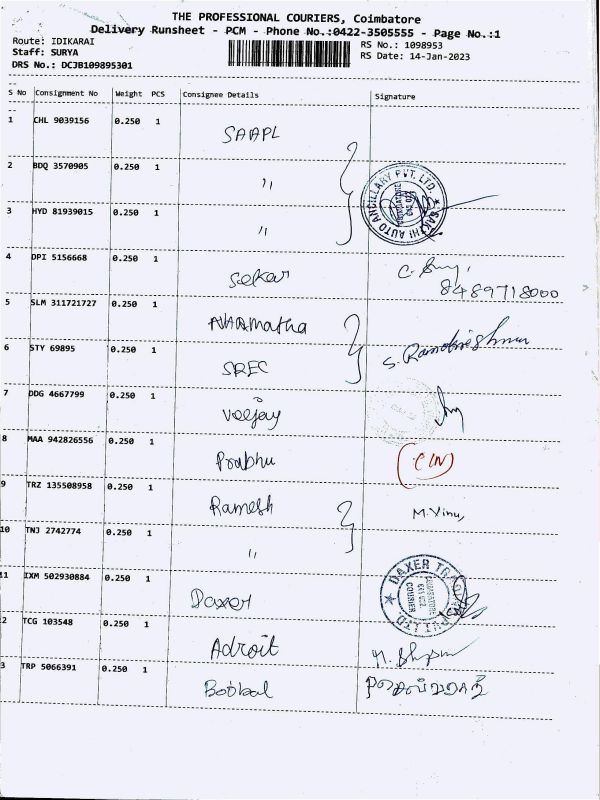 THE PROFESSIONAL COURIERS, Coimbatore
Delivery Runsheet - PCM - Phone No.:0422-3505555 - Page No.:1
Route: IDIKARAI
Staff: SURYA
DRS No.: DCJB109895301
RS No.: 1098953
RS Date: 14-Jan-2023
S No Consignment No Weight PCS Consignee Details Signature
1 CHL 9039156 0.250 1 SAAPL
2 BDQ 3570905 0.250 1 "
SAKTHI AUTO ANCILLARY PVT. LTD.
3 HYD 81939015 0.250 1 "
4 DPI 5156668 0.250 1 Sekar
8489718000
5 SLM 311721727 0.250 1
6 STY 69895 0.250 1 SREC
7 DDG 4667799 0.250 1 Veejay
8 MAA 942826556 0.250 1 Prabhu
9 TRZ 135508958 0.250 1 Ramesh M.Vinu,
10 TNJ 2742774 0.250 1 "
11 IXM 502930884 0.250 1 Daxer
DAXER PVT LTD
COIMBATORE
641 022
COURIER
2 TCG 103548 0.250 1 Adroit
3 TRP 5066391 0.250 1